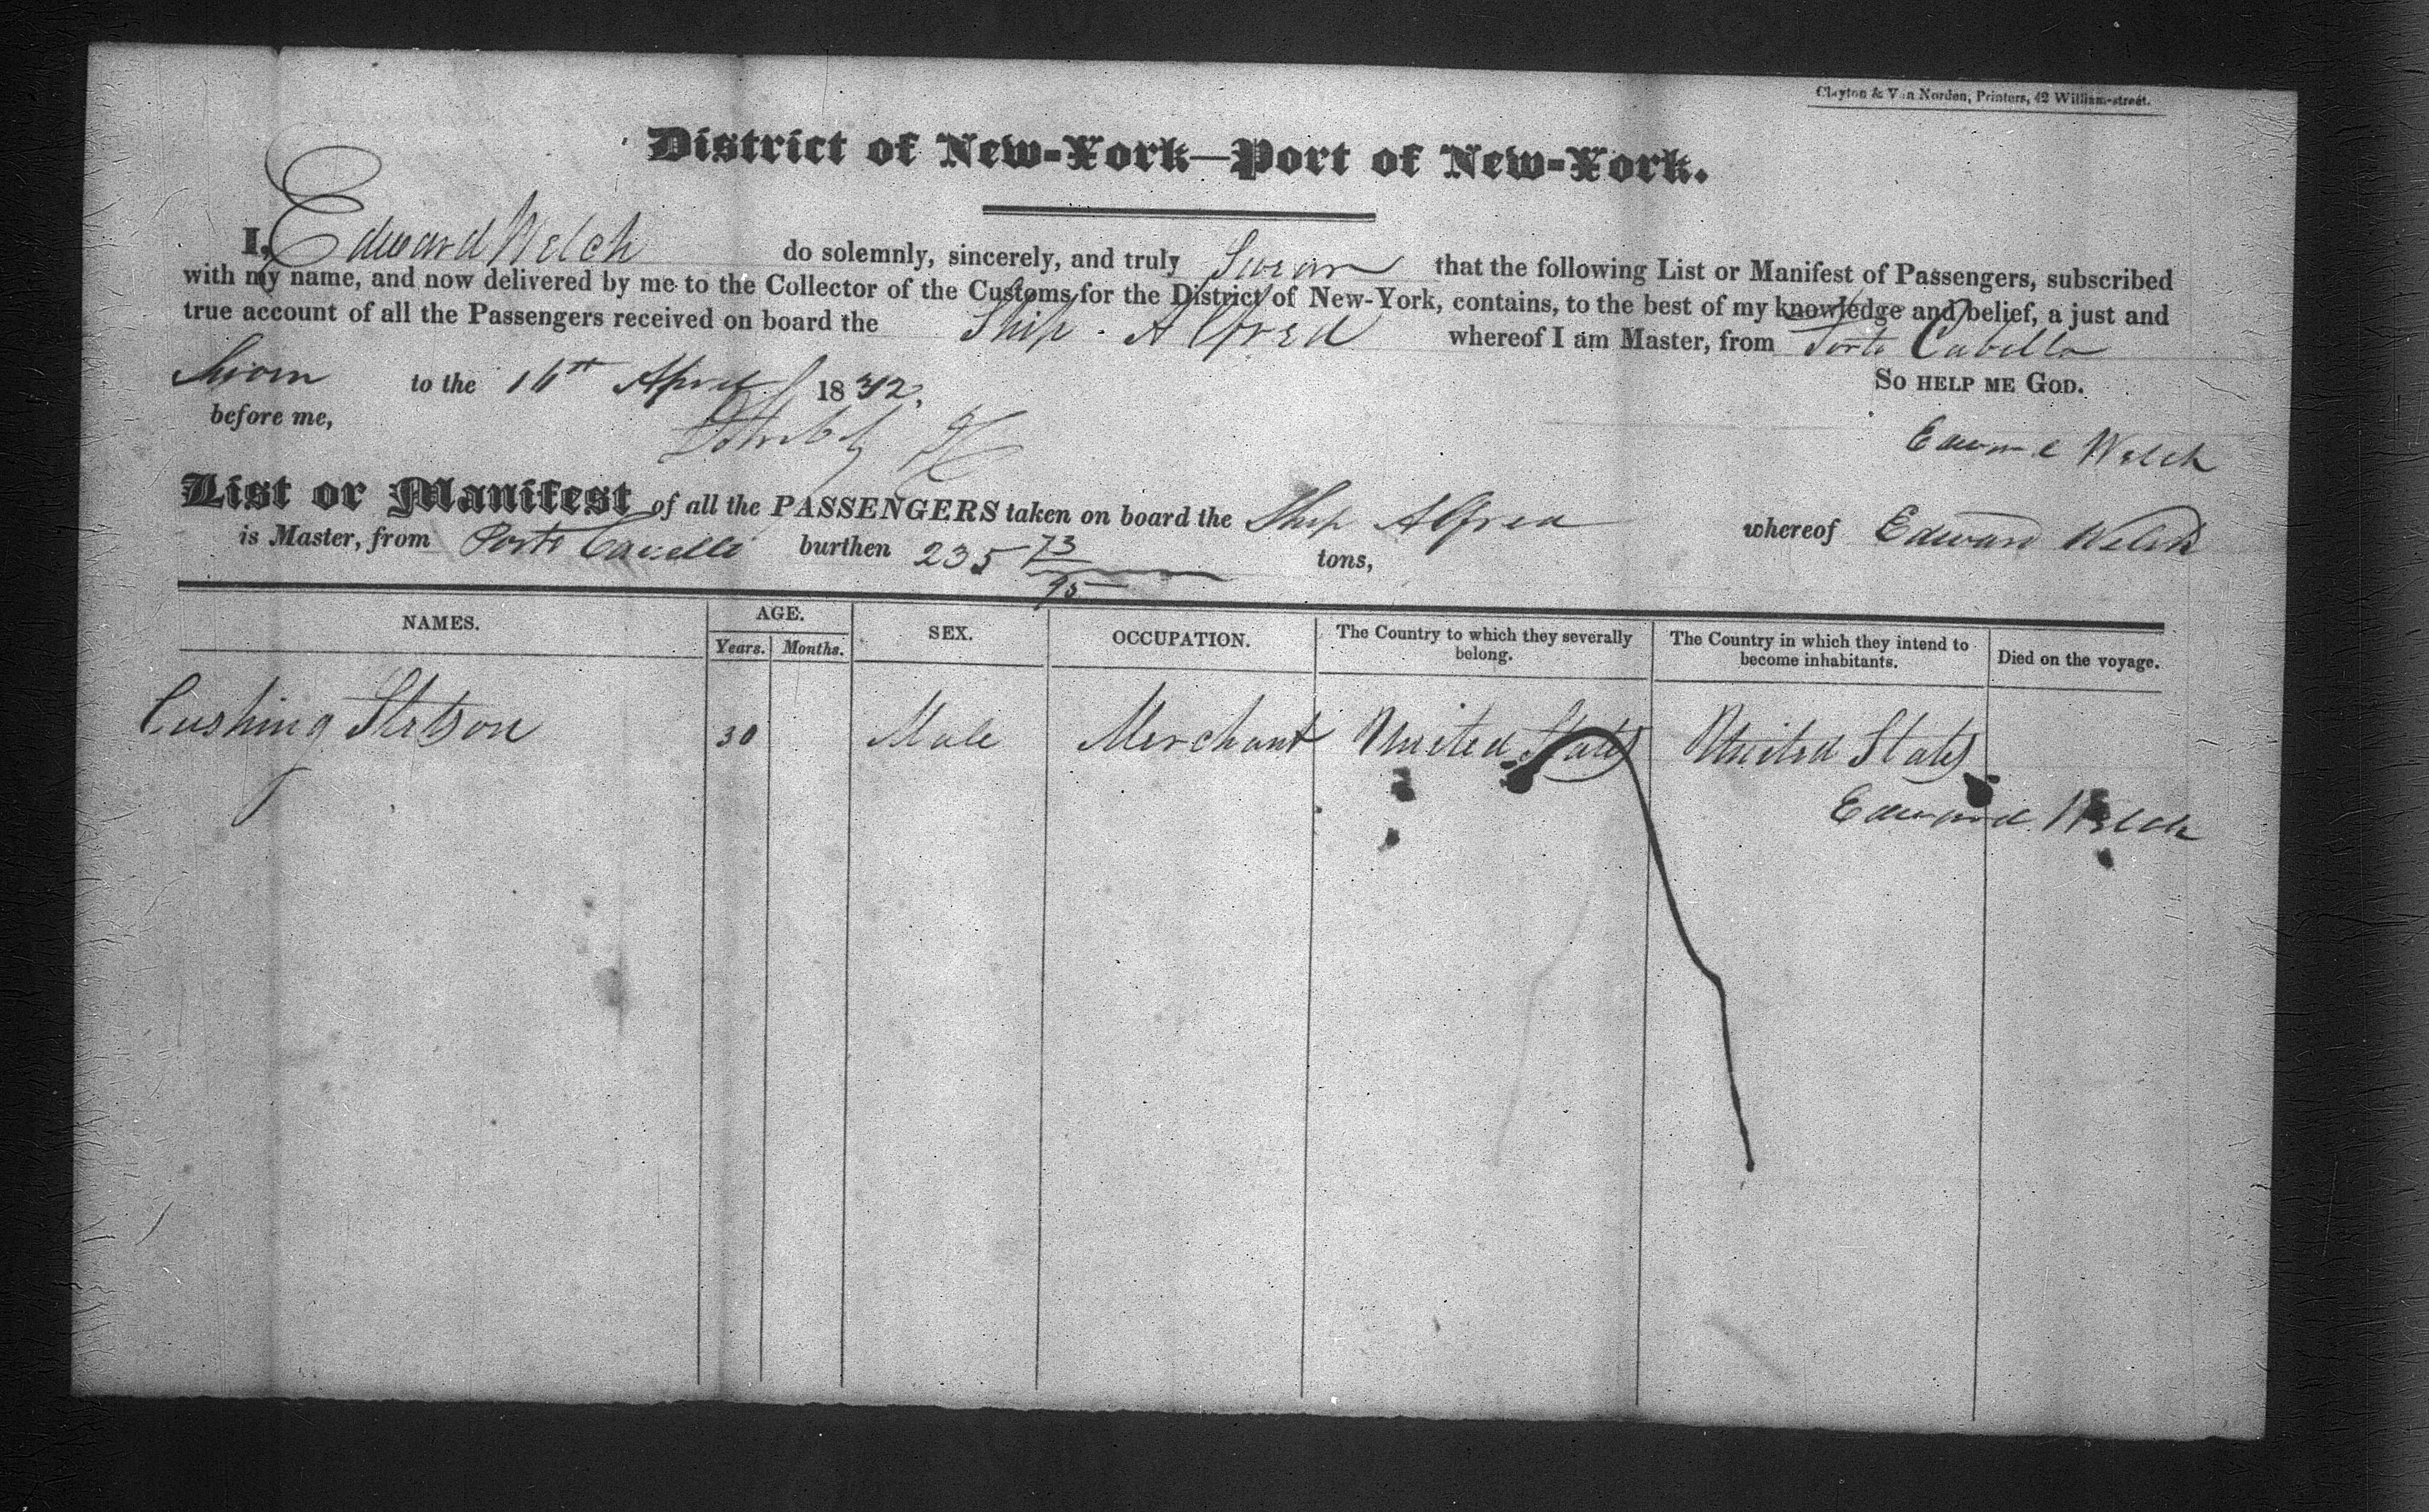 Clayton & Van Norden, Printers, 42 William-street.
District of New-York—Port of New-York.
I, Edward Welch do solemnly, sincerely, and truly Swear that the following List or Manifest of Passengers, subscribed
with my name, and now delivered by me to the Collector of the Customs for the District of New-York, contains, to the best of my knowledge and belief, a just and
true account of all the Passengers received on board the Ship Alfred whereof I am Master, from Porto Cabello
Sworn to the 16th April 1832. So help me God.
before me,
Edward Welch
List or Manifest of all the PASSENGERS taken on board the Ship Alfred whereof Edward Welch
is Master, from Porto Cavello burthen 235 73/95 tons,
NAMES. AGE. SEX. OCCUPATION. The Country to which they severally belong. The Country in which they intend to become inhabitants. Died on the voyage.
Years. Months.
Cushing Stetson 30 Male Merchant United States United States
Edward Welch